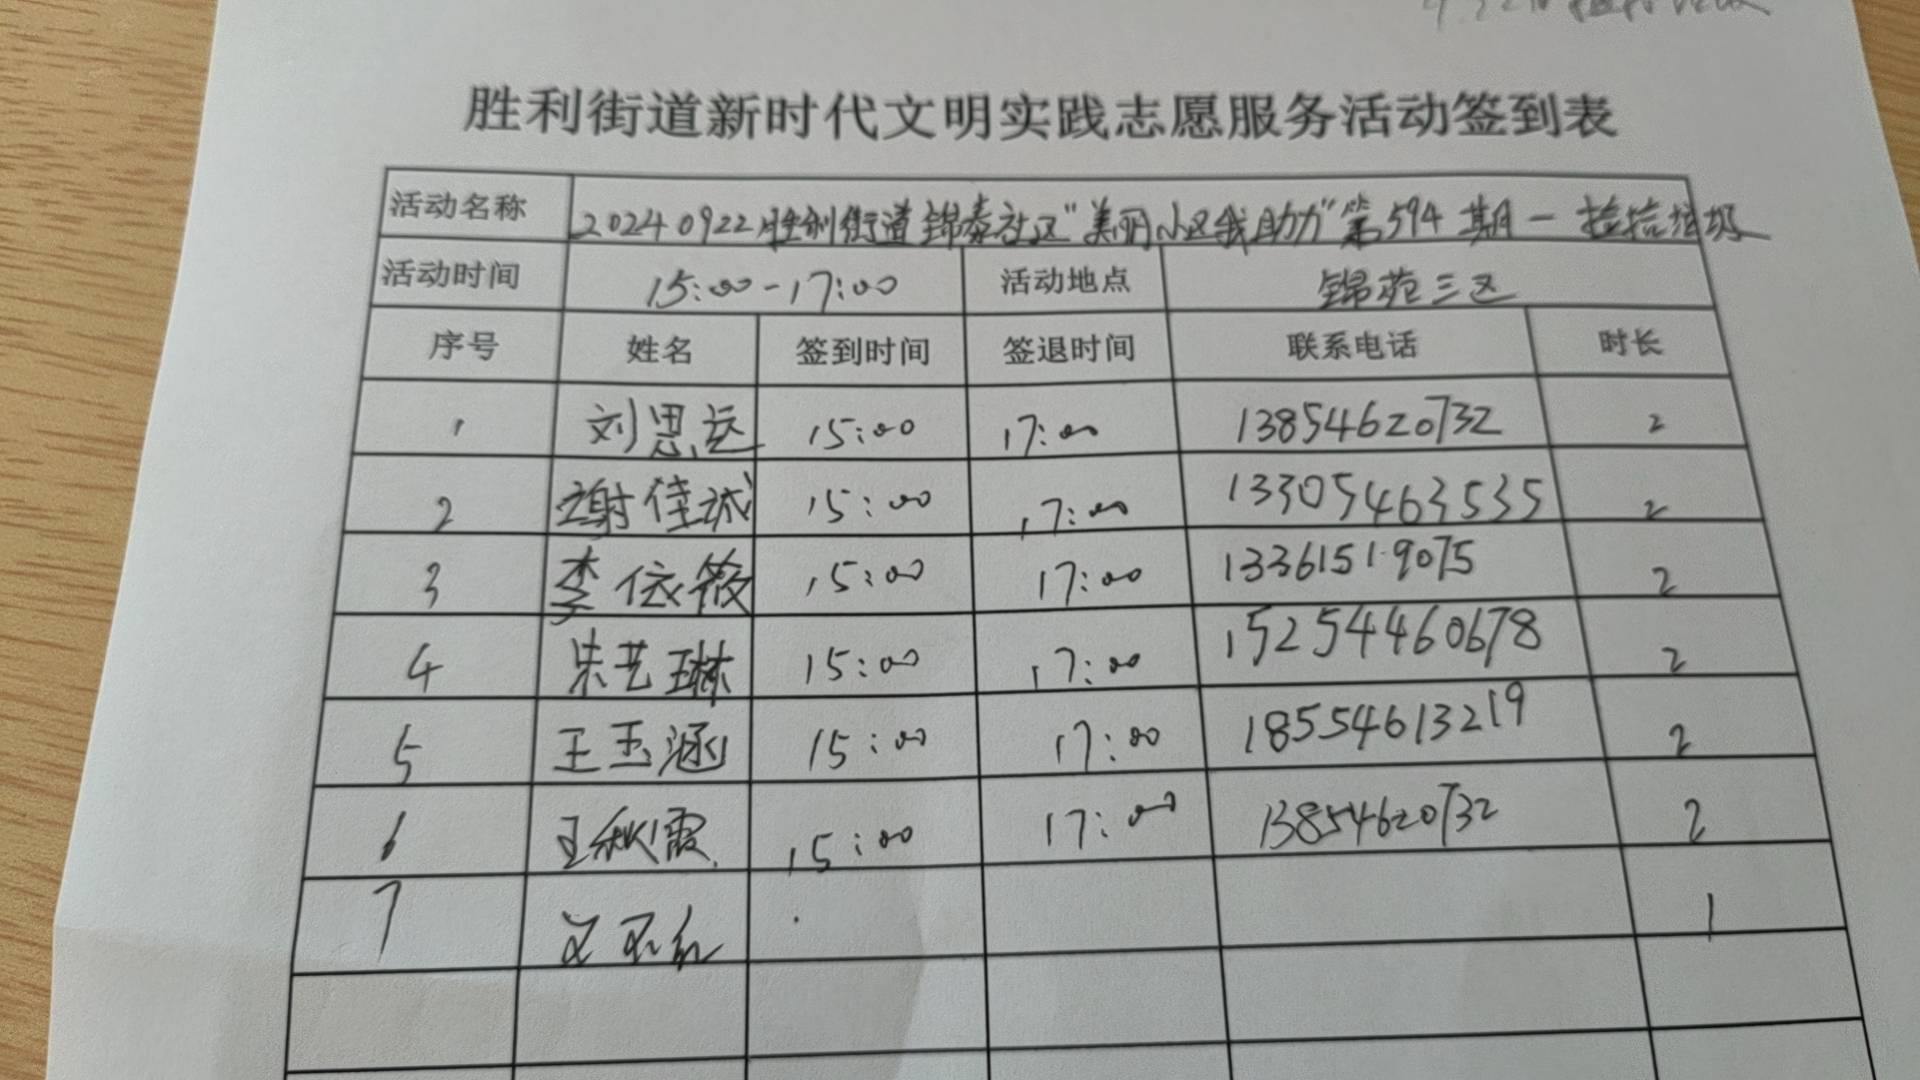 胜利街道新时代文明实践志愿服务活动签到表
活动名称 20240922胜利街道锦泰社区"美丽小区我助力"第594期一捡拾垃圾
活动时间 15:00-17:00 活动地点 锦苑三区
序号 姓名 签到时间 签退时间 联系电话 时长
1 刘思运 15:00 17:00 13854620732 2
2 谢佳诚 15:00 17:00 13305463535 2
3 李依筱 15:00 17:00 13361519075 2
4 朱艺琳 15:00 17:00 15254460678 2
5 王玉涵 15:00 17:00 18554613219 2
6 王秋霞 15:00 17:00 13854620732 2
7 1